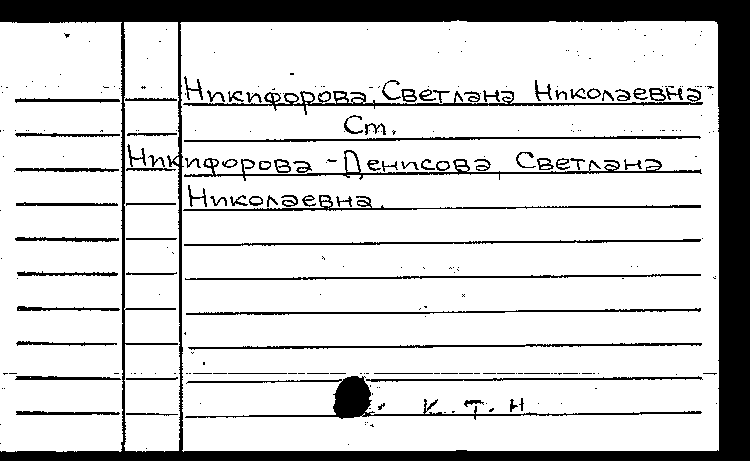 Никифорова, Светлана Николаевна
Ст.
Никифорова-Денисова, Светлана
Николаевна.
к.т.н